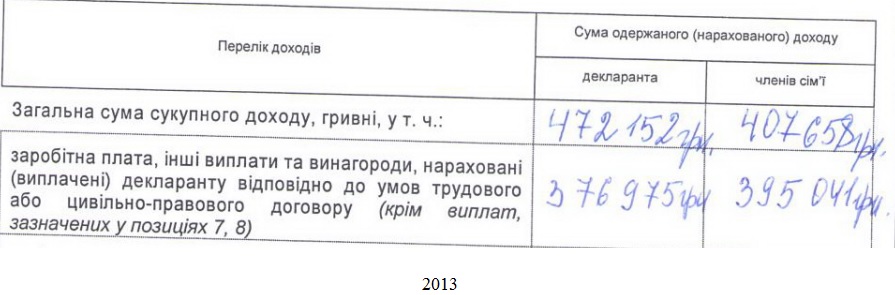 Перелік доходів
Сума одержаного (нарахованого) доходу
декларанта
членів сім’ї
Загальна сума сукупного доходу, гривні, у т. ч.:
472 152 грн.
407 658 грн.
заробітна плата, інші виплати та винагороди, нараховані
(виплачені) декларанту відповідно до умов трудового
або цивільно-правового договору (крім виплат,
зазначених у позиціях 7, 8)
376 975 грн
395 041 грн.
2013